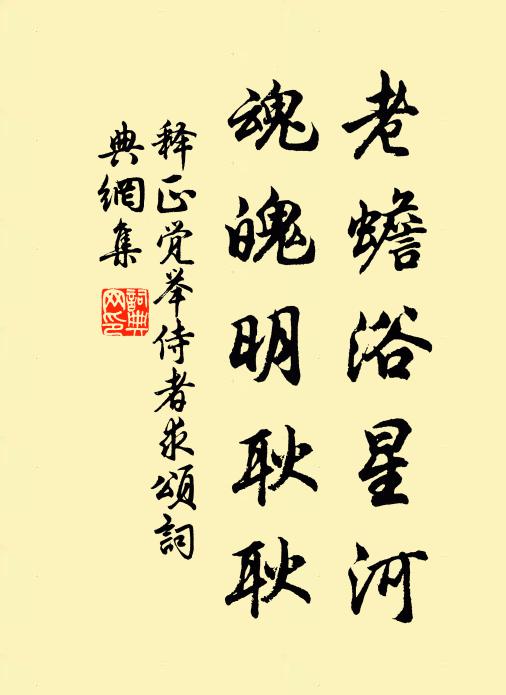 老蟾浴星河
魂魄明耿耿
释正觉举侍者求颂词
典網集
詞典
网印